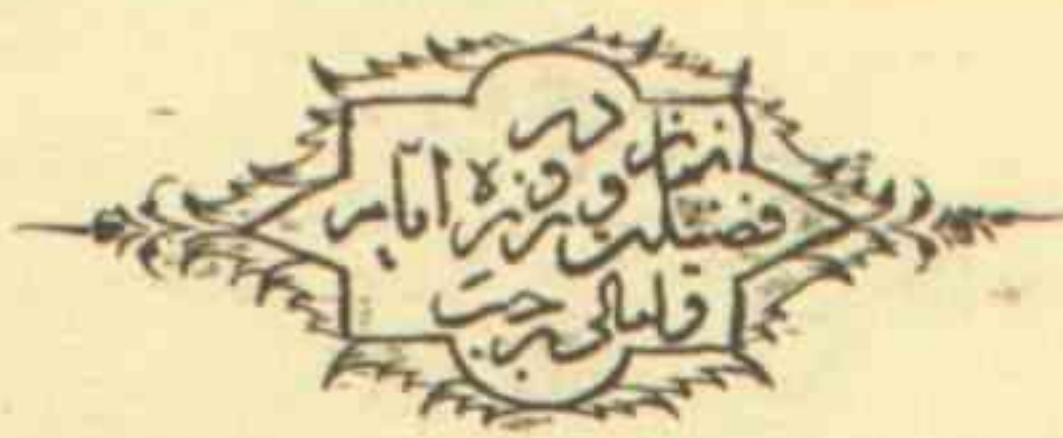 در
فضیلت نماز و روزه ایام
و لیالی رجب